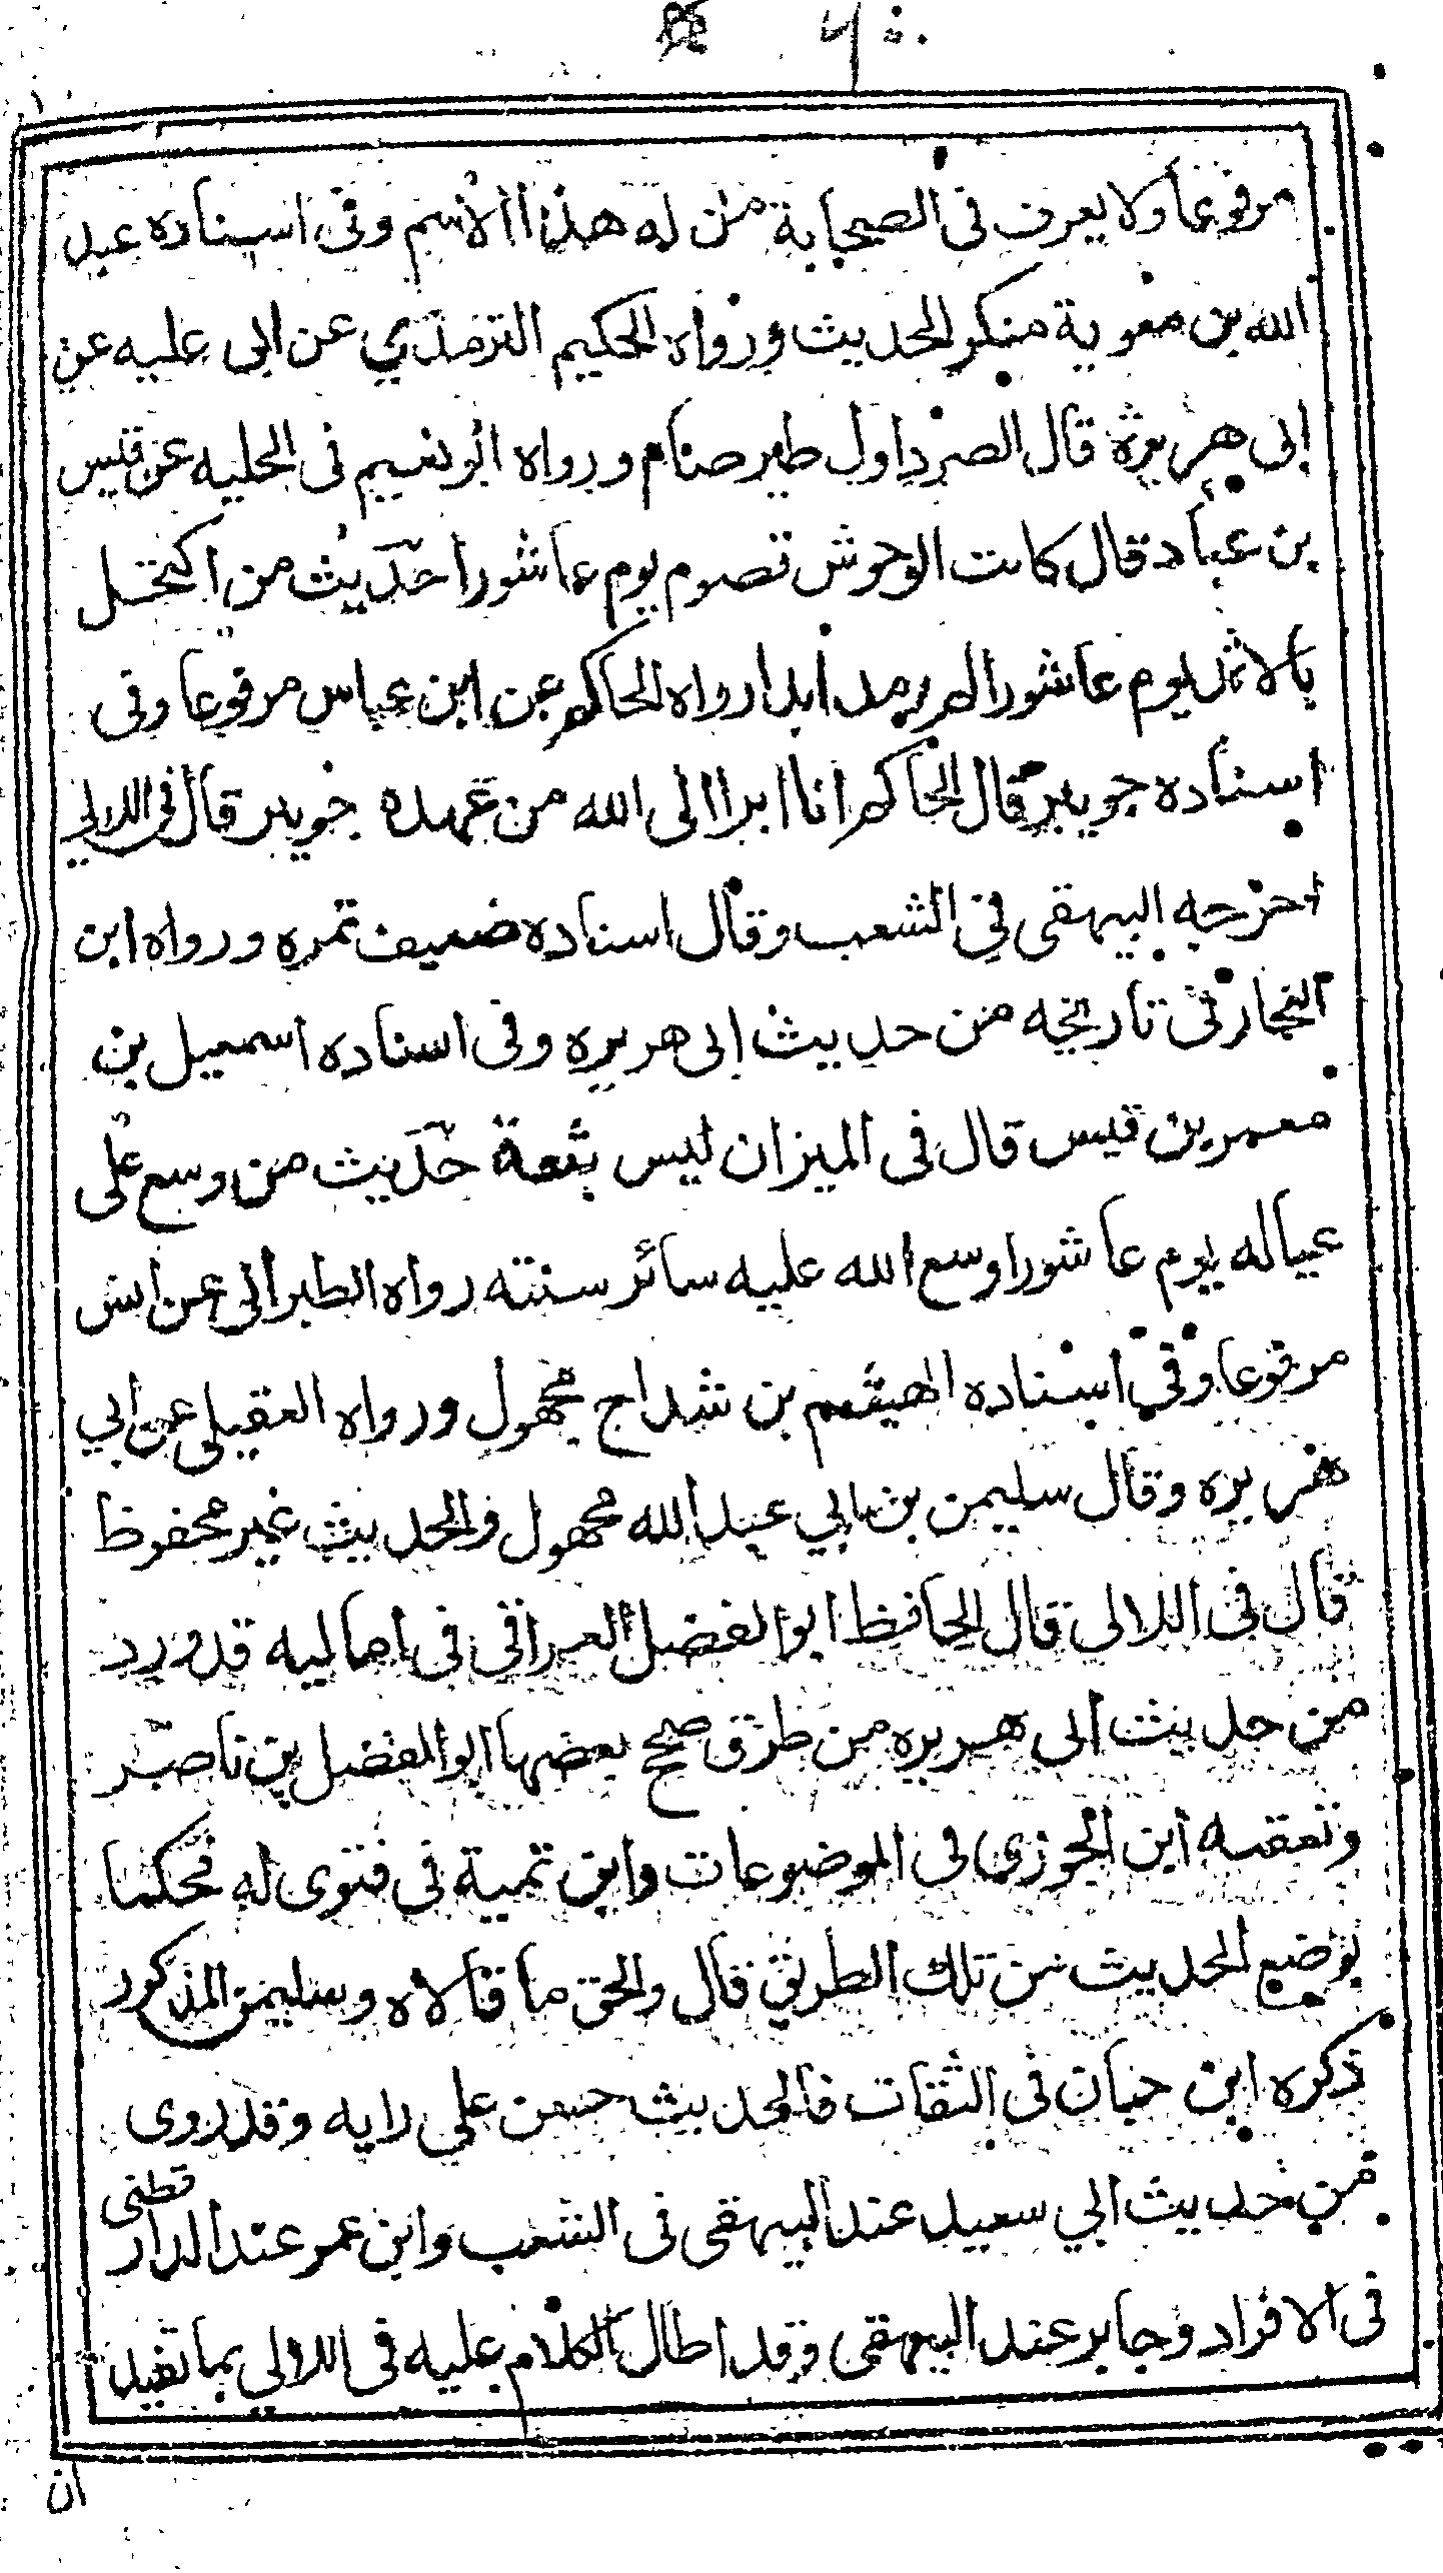 مرفوعا ولا يعرف فى الصحابة من له هذا الاسم وفى اسناده عبد
الله بن معوية منكر الحديث ورواه الحكيم الترمذي عن ابى عليه عن
ابى هريرة قال الصرد اول طير صام ورواه ابو نعيم فى الحليه عن قيس
بن عباد قال كانت الوحوش تصوم يوم عاشورا حديث من اكتحل
بالاثمد يوم عاشورا لم يرمد ابدا رواه الحاكم عن ابن عباس مرفوعا وفى
اسناده جويبر قال الحاكم انا ابرا الى الله من عهدة جويبر قال فى اللالي
اخرجه البيهقى في الشعب وقال اسناده ضعيف بمره ورواه ابن
النجار فى تاريخه من حديث ابى هريره وفى اسناده اسمعيل بن
معمر بن قيس قال فى الميزان ليس بثقة حديث من وسع على
عياله يوم عاشورا وسع الله عليه سائر سنته رواه الطبرانى عن انس
مرفوعا وفي اسناده الهيثم بن شداخ مجهول ورواه العقيلى عن ابي
هريره وقال سليمن بن ابي عبد الله مجهول والحديث غير محفوظ
قال فى اللالى قال الحافظ ابو الفضل العراقى فى اماليه قد ورد
من حديث ابى هريره من طرق صحح بعضها ابو الفضل بن ناصر
وتعقبه ابن الجوزى فى الموضوعات وابن تمية فى فتوى له فحكما
بوضع الحديث من تلك الطريق قال والحق ما قالاه وسليمن المذكور
ذكره ابن حبان فى الثقات فالحديث حسن على رايه وقد روى
من حديث ابي سعيد عند البيهقى فى الشعب وابن عمر عند الدار قطنى
فى الافراد وجابر عند البيهقى وقد اطال الكلام عليه فى اللالى بما تفيد
ان